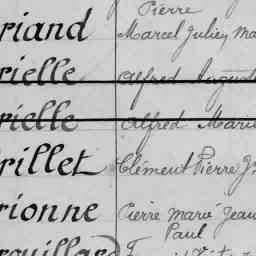 Pierre
riand Marcel Julien Ma
rielle Alfred Auguste
rielle Alfred Marie
rillet Clément Pierre J
rionne Pierre Marie Jean
Paul
rouillard